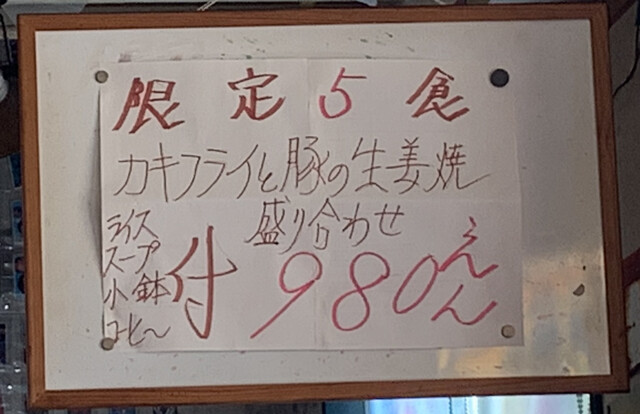 限定5食
カキフライと豚の生姜焼
盛り合わせ
ライス
スープ
小鉢
コーヒ〜
付
980えん